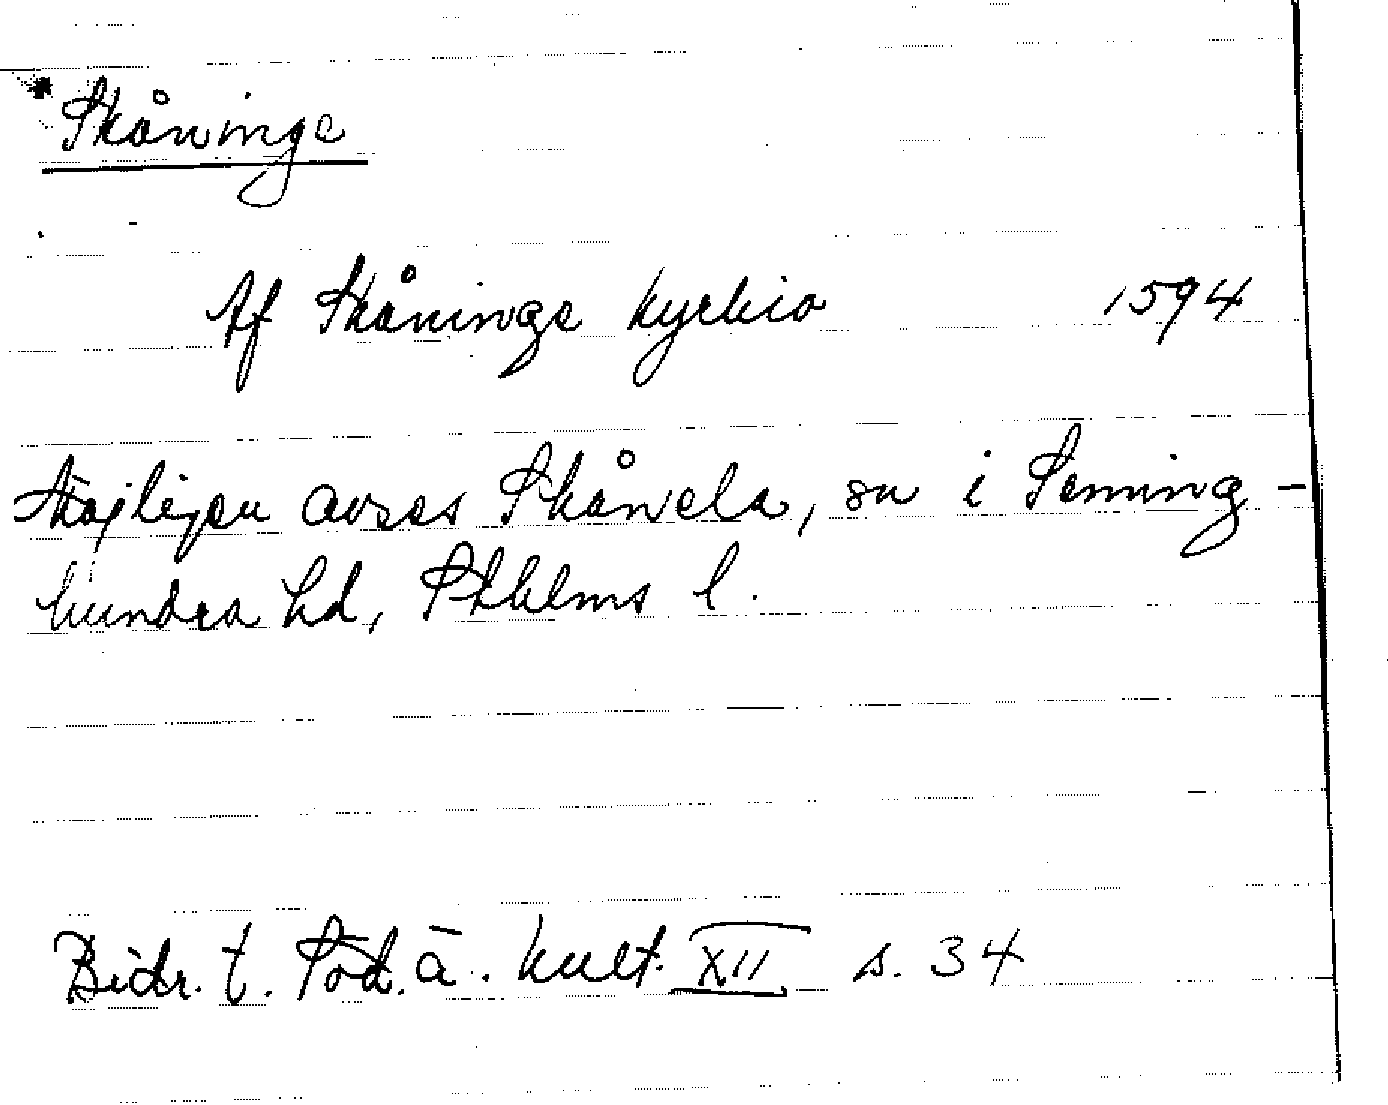 * Skåninge
Af Skåninge kyrkio 1594
Möjligen avses Skånela, sn i Seming-
hundra hd, Sthlms l.
Bidr. t. Söd. ä. kult. XII s. 34